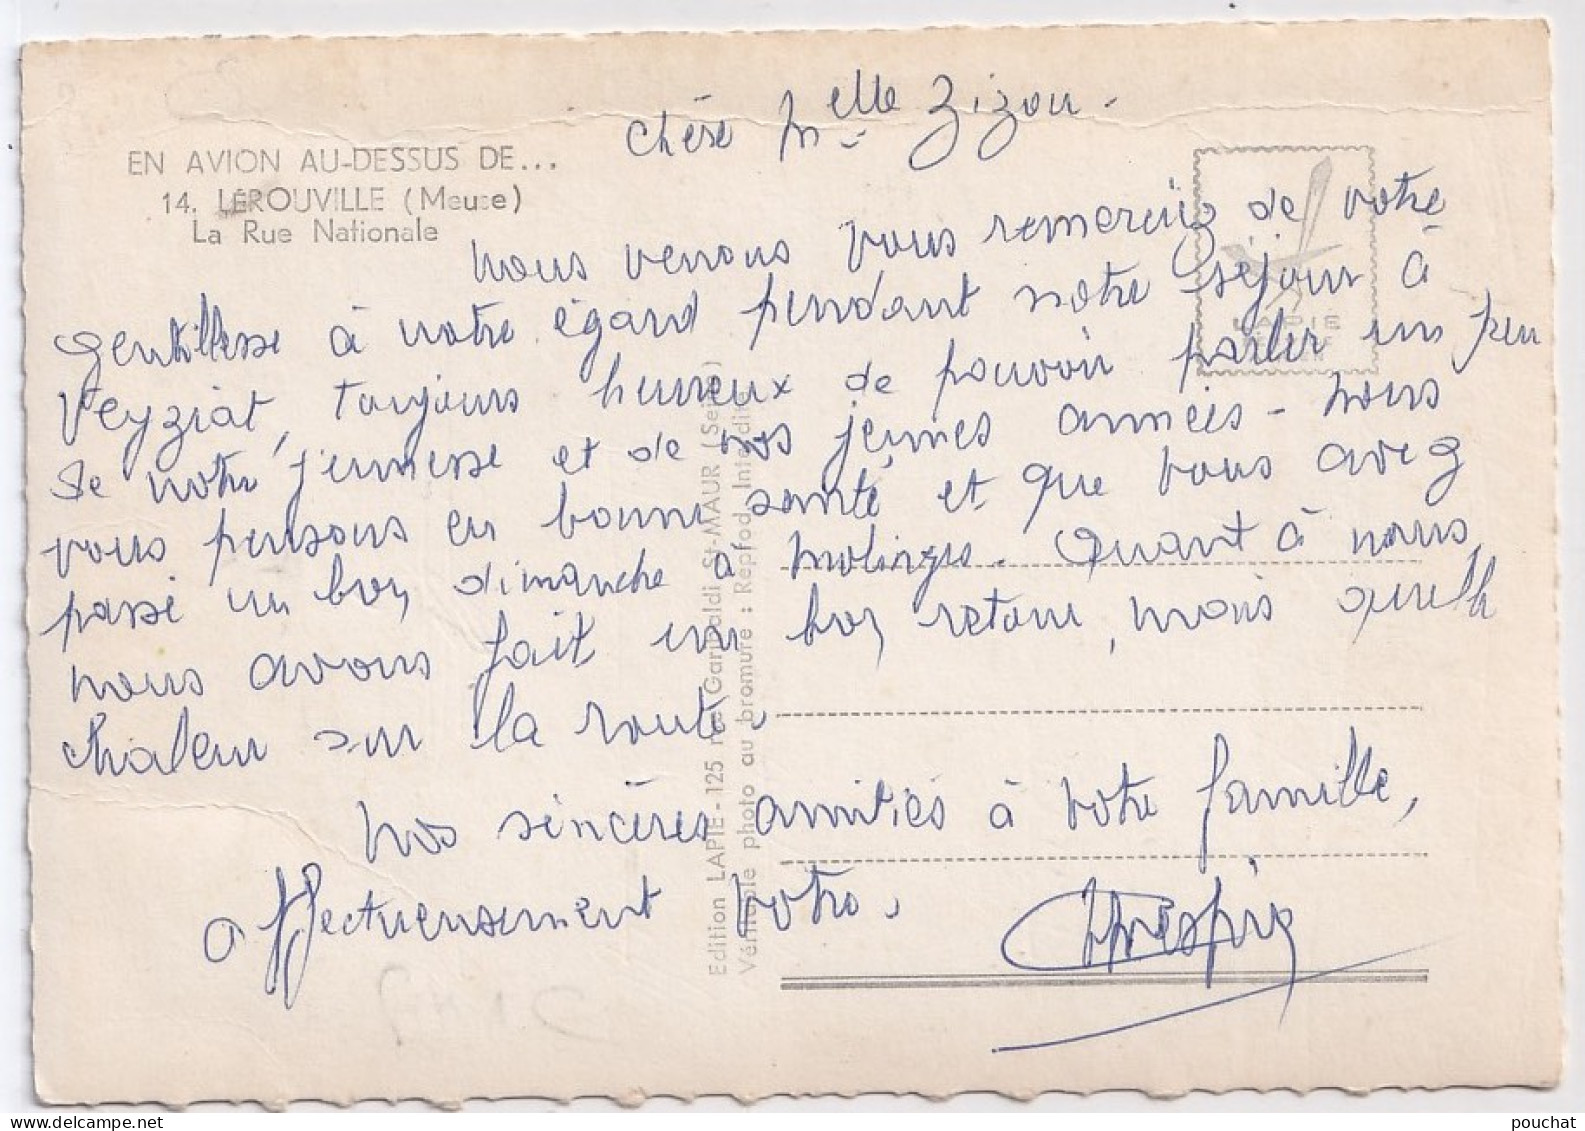 EN AVION AU-DESSUS DE...
14. LÉROUVILLE (Meuse)
La Rue Nationale
Chère Melle Zizou.
Nous venons vous remercier de votre
gentillesse à notre égard pendant notre séjour à
Veyziat, toujours heureux de pouvoir parler un peu
de notre jeunesse et de nos jeunes années - Nous
vous pensons en bonne santé et que vous avez
passé un bon dimanche à Molinges. Quant à nous
nous avons fait un bon retour, mais quelle
chaleur sur la route.
Nos sincères amitiés à votre famille,
affectueusement votre.
Edition LAPIE - 125 rue Garibaldi St-MAUR (Seine)
Véritable photo au bromure : Reprod. Interdite
LAPIE
www.delcampe.net
pouchat